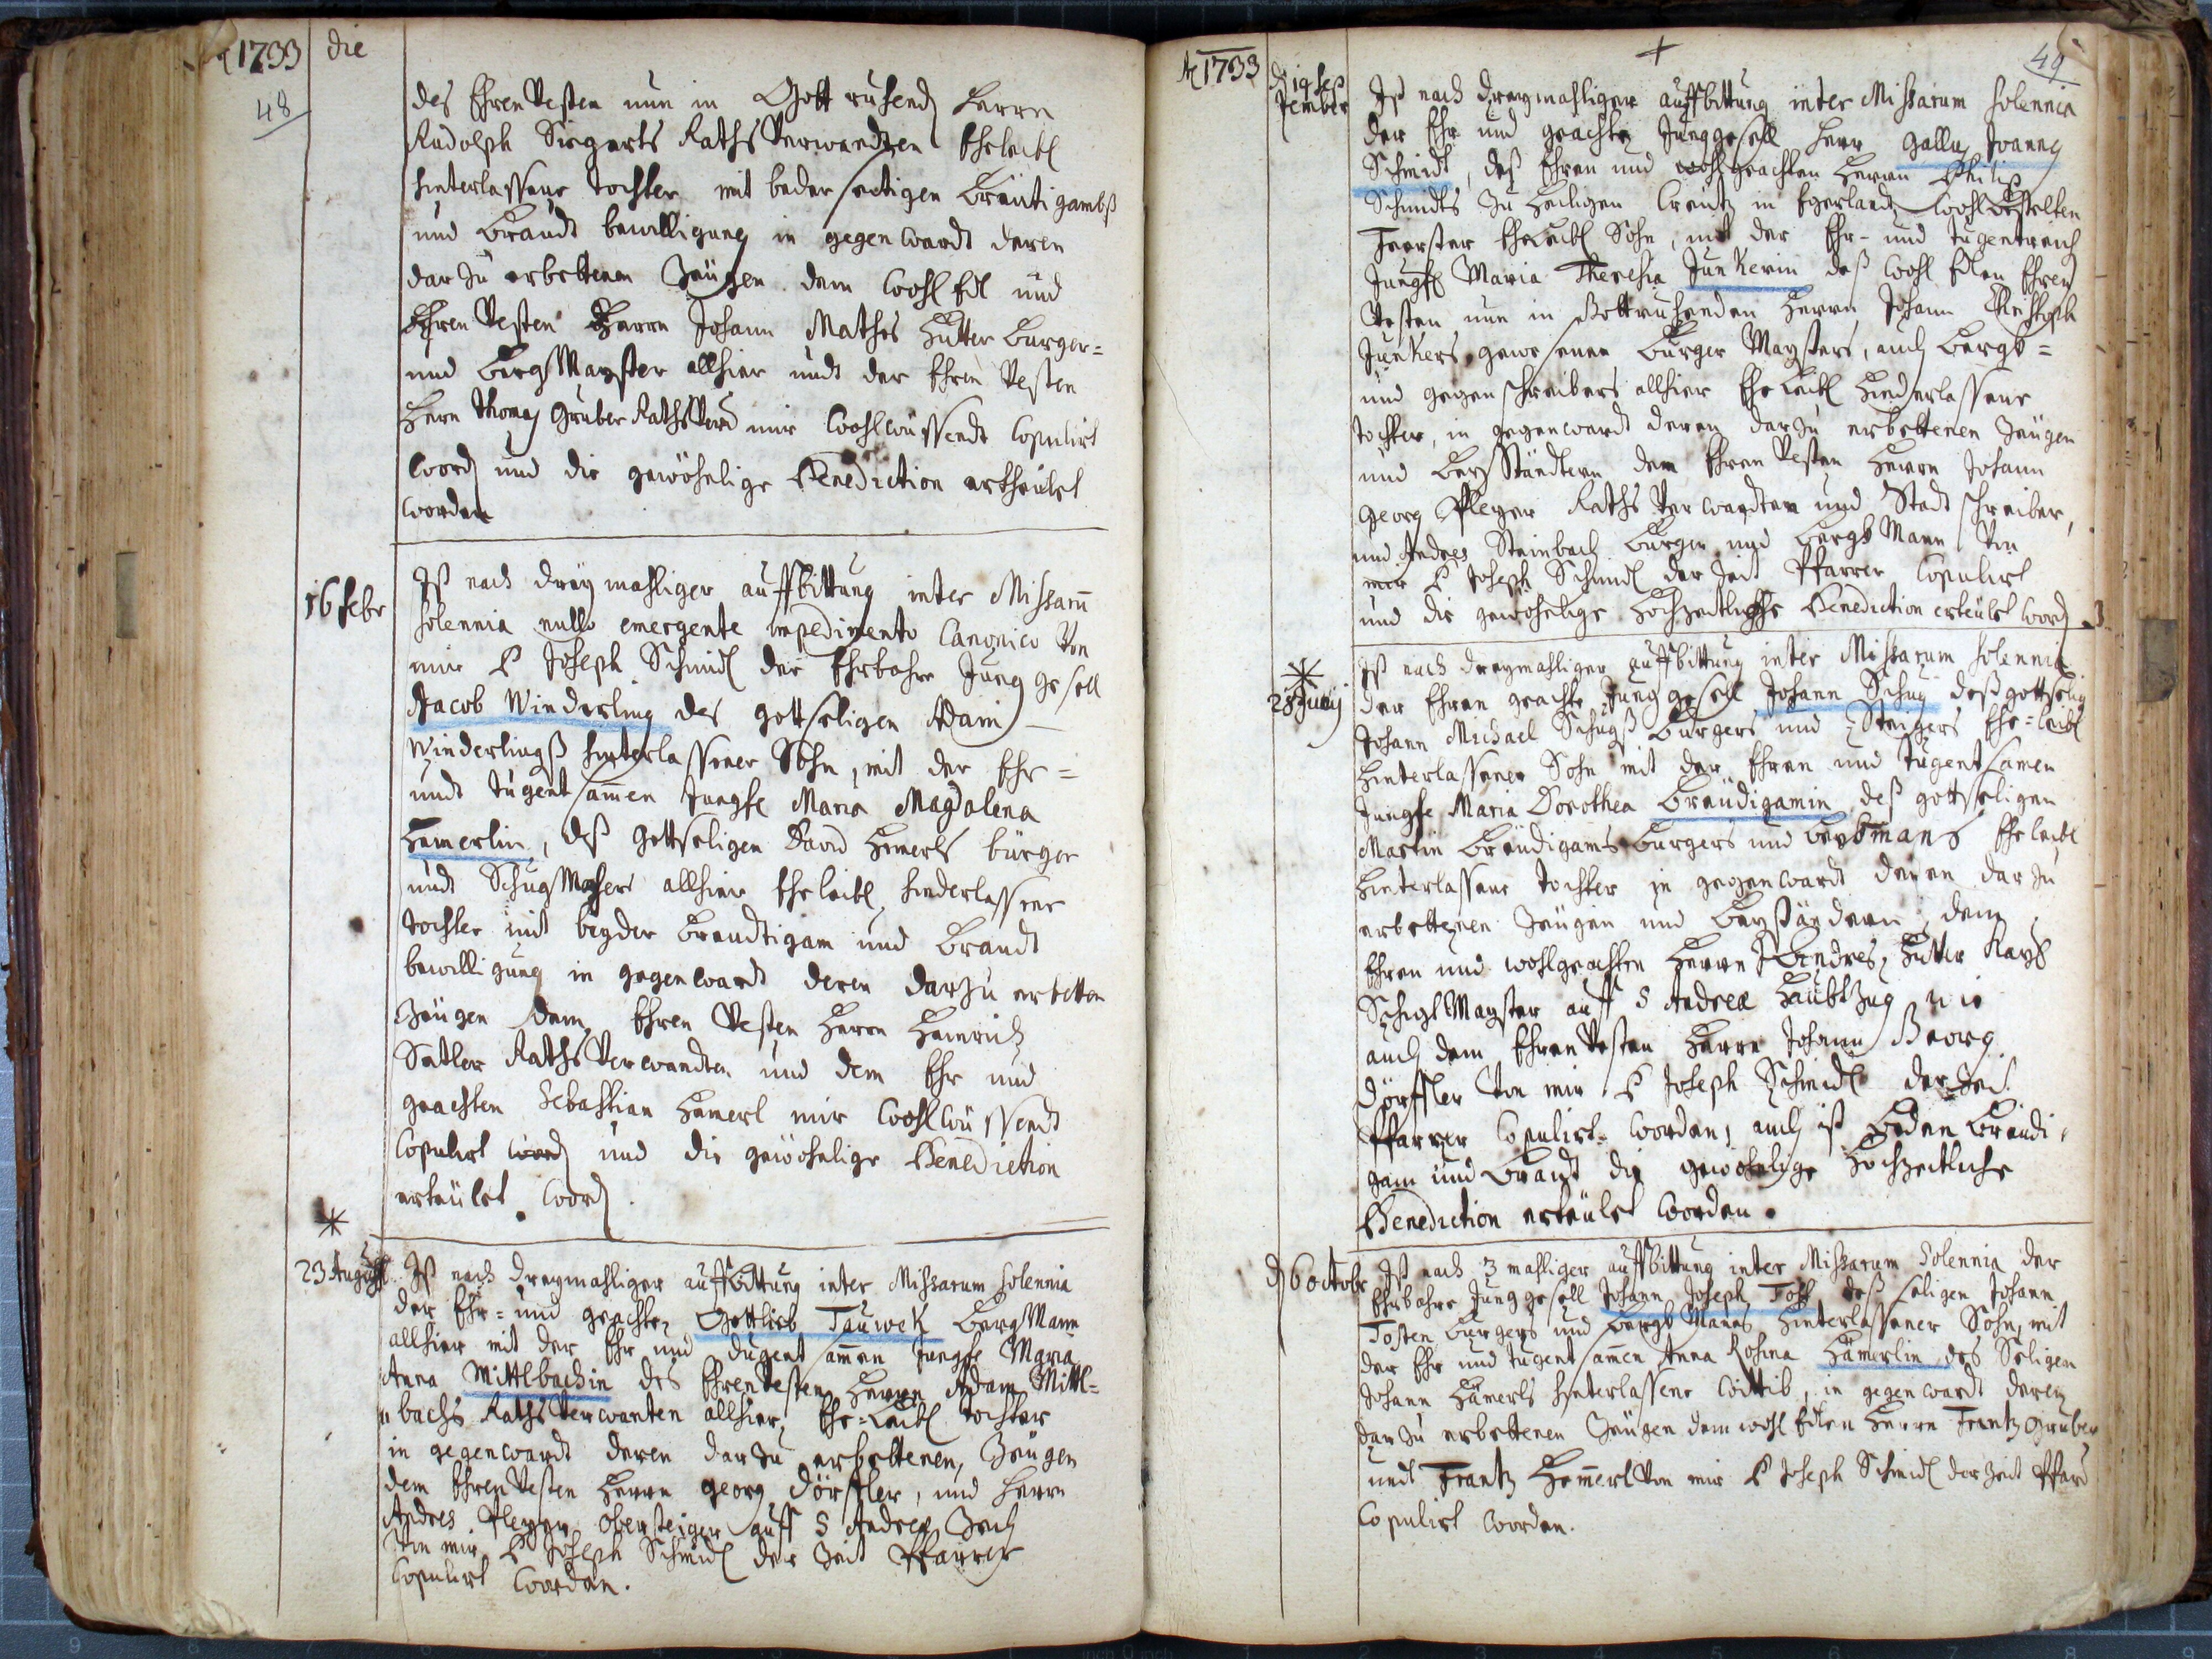 A 1733 die
48
des Ehren Vesten nun in Gott ruhend Herrn
Rudolph Siegerts Raths Verwandten Ehrleibl
hinterlassene tochter mit beder seitigen Bräutigambß
und Braudt bewilligung in gegenwardt deren
darzu erbettenen Zeugen dem Wohl Edl und
Ehren Vesten Herrn Johann Mathes Hutter Burger=
und BergMayster allhier undt der Ehren Vesten
Herrn Thomas Gruber RathsVerw mir wohlwüssendt Copulirt
word und die gewöhnlige Benediction ertheulet
worden
16 Febr
Ist nach dreymahliger auffbittung inter Missarũ
solennia nullo emergente impedimento Canonico Von
mir P Joseph Schmidl der Ehrbahre Junggesell
Jacob Winderling des gottseligen Adam
Winderlingß hinterlassener Sohn, mit der Ehr=
undt tugentsammen Jungfr Maria Magdalena
Hamerlin, deß gottseligen David Hemerls bürger
undt SchugMachers allhier Ehrleibl hinderlassene
tochter mit beyder Breudtigam und Braudt
bewilligung in gegenwardt deren darzu erbetten
Zeugen dem Ehren Vesten Herrn Heinrich
Satler Raths Verwandten und dem Ehr und
geachten Sebastian Hamerl mir wohlwüssendt
Copulirt word und die gewöhnlige Benediction
erteulet word
23 August
Ist nach dreymahliger auffbittung inter Missarum solennia
der Ehr= und geachte Gottlieb Tauwek BergMann
allhier mit der Ehr und dugentsammen Jungfr Maria
Anna Mittlbachin des Ehrenvesten Herrn Adam Mittl=
bachs Raths Verwanten allhier, Ehr=Leibl tochter
in gegenwardt deren darzu erbettenen Zeugen
dem Ehren Vesten Herrn Georg Dörffler, und Herrn
Andres Pleyer Obersteiger auff S Andreæ Zech
Von mir P Joseph Schmidl der Zeit Pfarrer
Copulirt worden.
A 1733
49
d 19 Sep
tember
Ist nach dreymahliger auffbittung inter Missarum solennia
der Ehr und geachte Junggesell Herr Gallus Joannes
Schmidt, deß Ehren und wohlgeachten Herrn Philip
Schmidts zu Heiligen Creutz in Egerlandt wohlbestelten
Foerster Ehrleibl Sohn, mit der Ehr- und tugentreich
Jungfr Maria Theresia Junkerin deß Wohl Edlen Ehren
Vesten nun in Gottruhenden Herrn Johann Christoph
Junkers gewesenen Burger Maysters, auch Bergk=
und gegenschreibers allhier Ehr Leibl Hinderlassene
tochter, in gegenwardt deren darzu erbettenen Zeugen
und BeyStändtern dem Ehren Vesten Herrn Johann
Georg Pleyer Raths Verwandten und Stadt schreiber,
und Andres Steinbach Burger und Bergk Mann Von
mir P Joseph Schmidl der Zeit Pfarrer Copulirt
und die gewöhnlige Hochzeitliche Benediction erteulet word
28 Junij
Ist nach dreymahliger auffbittung inter Missarum solennia
der Ehren geachte Junggesell Johann Schug deß gottselig
Johann Michael Schugß Burgers und Steigers Ehr=leibl
Hinterlassener Sohn mit der Ehren und Tugentsamen
Jungfr Maria Dorothea Bräudigamin deß gottseligen
Martin Bräudigams Burgers und Bergkmans Ehrleibl
Hinterlassene tochter in gegenwardt deren darzu
erbettenen Zeugen und Beyständern, dem
Ehren und wohlgeachten Herrn Andres, Hutter Kays
SchigtMayster auff S Andreæ Haubtzug wie
auch dem Ehren Vesten Herrn Johann Georg
Dörffler Von mir P Joseph Schmidl der Zeit
Pfarrer Copulirt worden, auch ist Beden Bräudi
gam und Braudt die gewöhnlige Hochzeitliche
Benediction erteulet worden.
d 6 octobr
Ist nach 3 mahliger auffbittung inter Missarum Solennia der
Ehrbahre Junggesell Johann Joseph Tost deß seligen Johann
Tosten Burgers und Bergk Manns Hinterlassener Sohn, mit
der Ehr und tugentsammen Anna Rosina Hämerlin des Seligen
Johann Hämerls hinterlassene Wittib, in gegenwardt deren
darzu erbettenen Zeugen dem wohl Edlen Herrn Frantz Gruber
undt Frantz Hemerl Von mir P Joseph Schmidl der Zeit Pfarr
Copulirt worden.